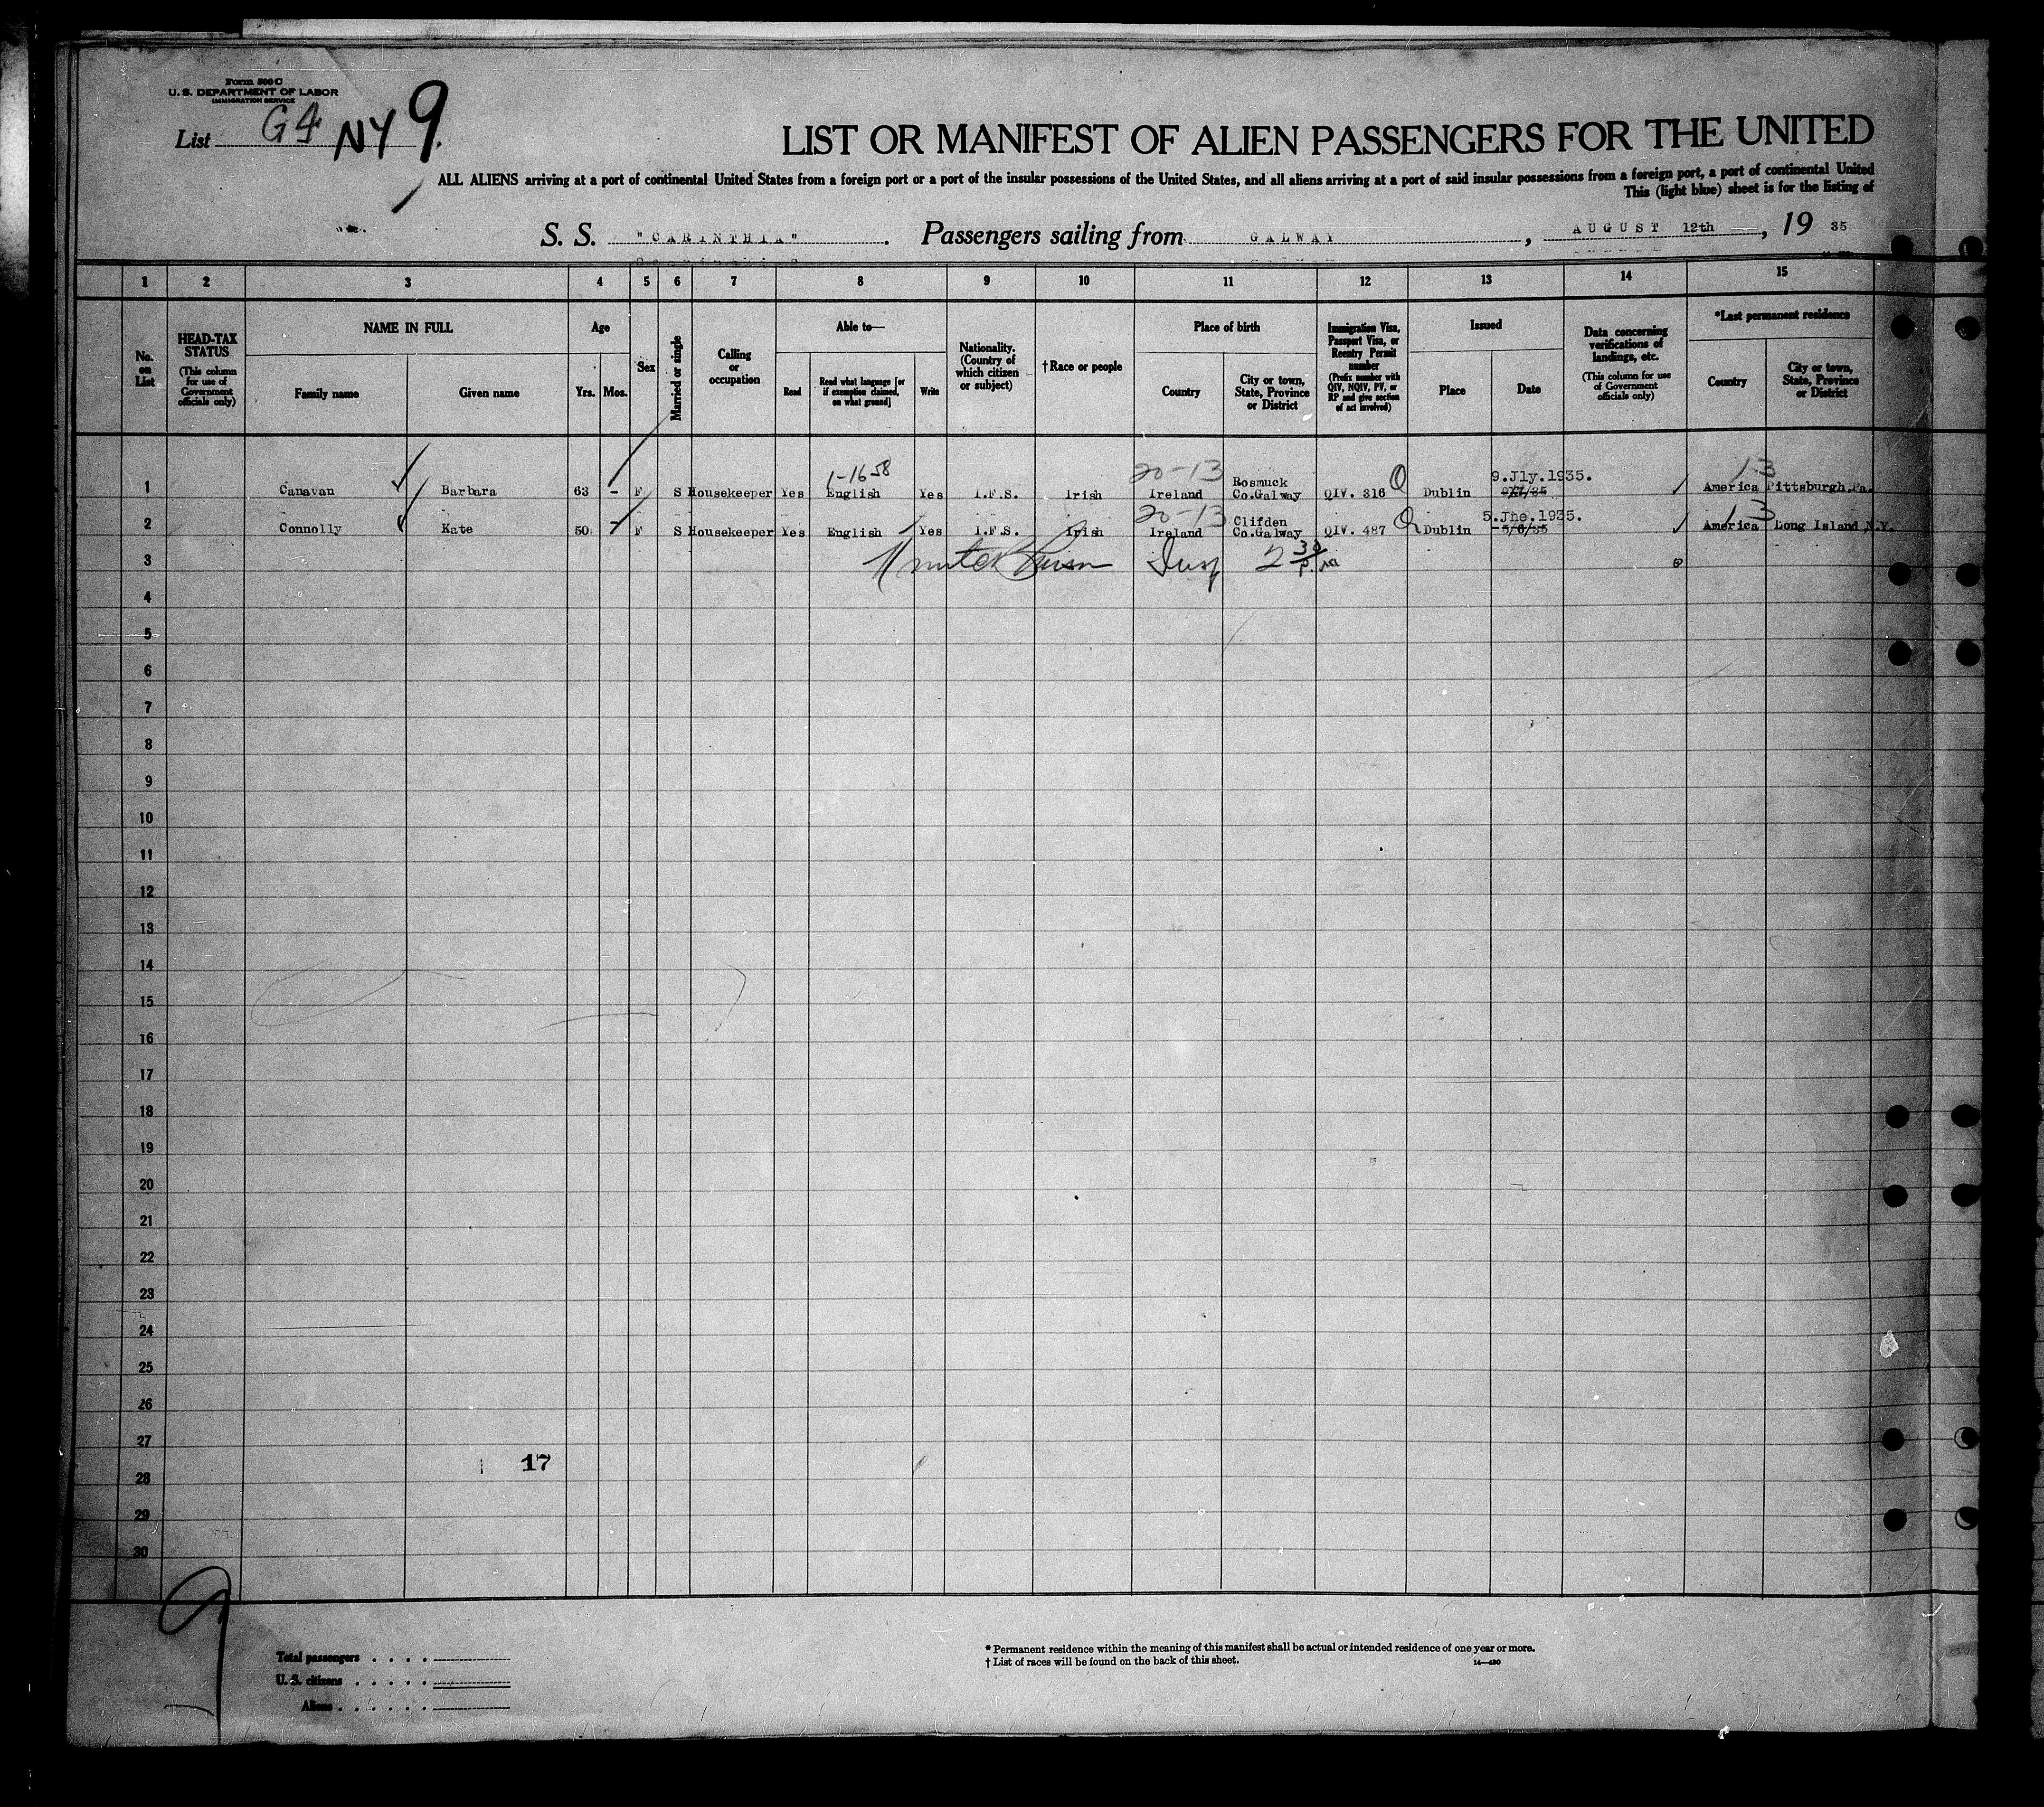 Form 500 C
U. S. DEPARTMENT OF LABOR
IMMIGRATION SERVICE
List G4 NY 9
LIST OR MANIFEST OF ALIEN PASSENGERS FOR THE UNITED
ALL ALIENS arriving at a port of continental United States from a foreign port or a port of the insular possessions of the United States, and all aliens arriving at a port of said insular possessions from a foreign port, a port of continental United
This (light blue) sheet is for the listing of
S. S. "CARINTHIA" . Passengers sailing from GALWAY , AUGUST 12th , 19 35
1 2 3 4 5 6 7 8 9 10 11 12 13 14 15
No. on List
HEAD-TAX STATUS
(This column for use of Government officials only)
NAME IN FULL
Family name
Given name
Age
Yrs.
Mos.
Sex
Married or single
Calling or occupation
Able to—
Read
Read what language [or if exemption claimed, on what ground]
Write
Nationality. (Country of which citizen or subject)
† Race or people
Place of birth
Country
City or town, State, Province or District
Immigration Visa, Passport Visa, or Reentry Permit number
(Prefix number with QIV, NQIV, PV, or RP and give section of act involved)
Issued
Place
Date
Data concerning verifications of landings, etc.
(This column for use of Government officials only)
*Last permanent residence
Country
City or town, State, Province or District
1-16-58 20-13 Rosmuck 9.Jly.1935. 13
1 Canavan Barbara 63 - F S Housekeeper Yes English Yes I.F.S. Irish Ireland Co.Galway QIV. 316 Dublin America Pittsburgh,Pa.
20-13 Clifden 5.Jne.1935. 13
2 Connolly Kate 50 - F S Housekeeper Yes English Yes I.F.S. Irish Ireland Co.Galway QIV. 487 Dublin 5/6/35 America Long Island,N.Y.
3 Insp 2 30 p.m
4
5
6
7
8
9
10
11
12
13
14
15
16
17
18
19
20
21
22
23
24
25
26
27
17
28
29
30
9
Total passengers . . . .
U. S. citizens . . . . .
Aliens . . . . . .
* Permanent residence within the meaning of this manifest shall be actual or intended residence of one year or more.
† List of races will be found on the back of this sheet.
14—430